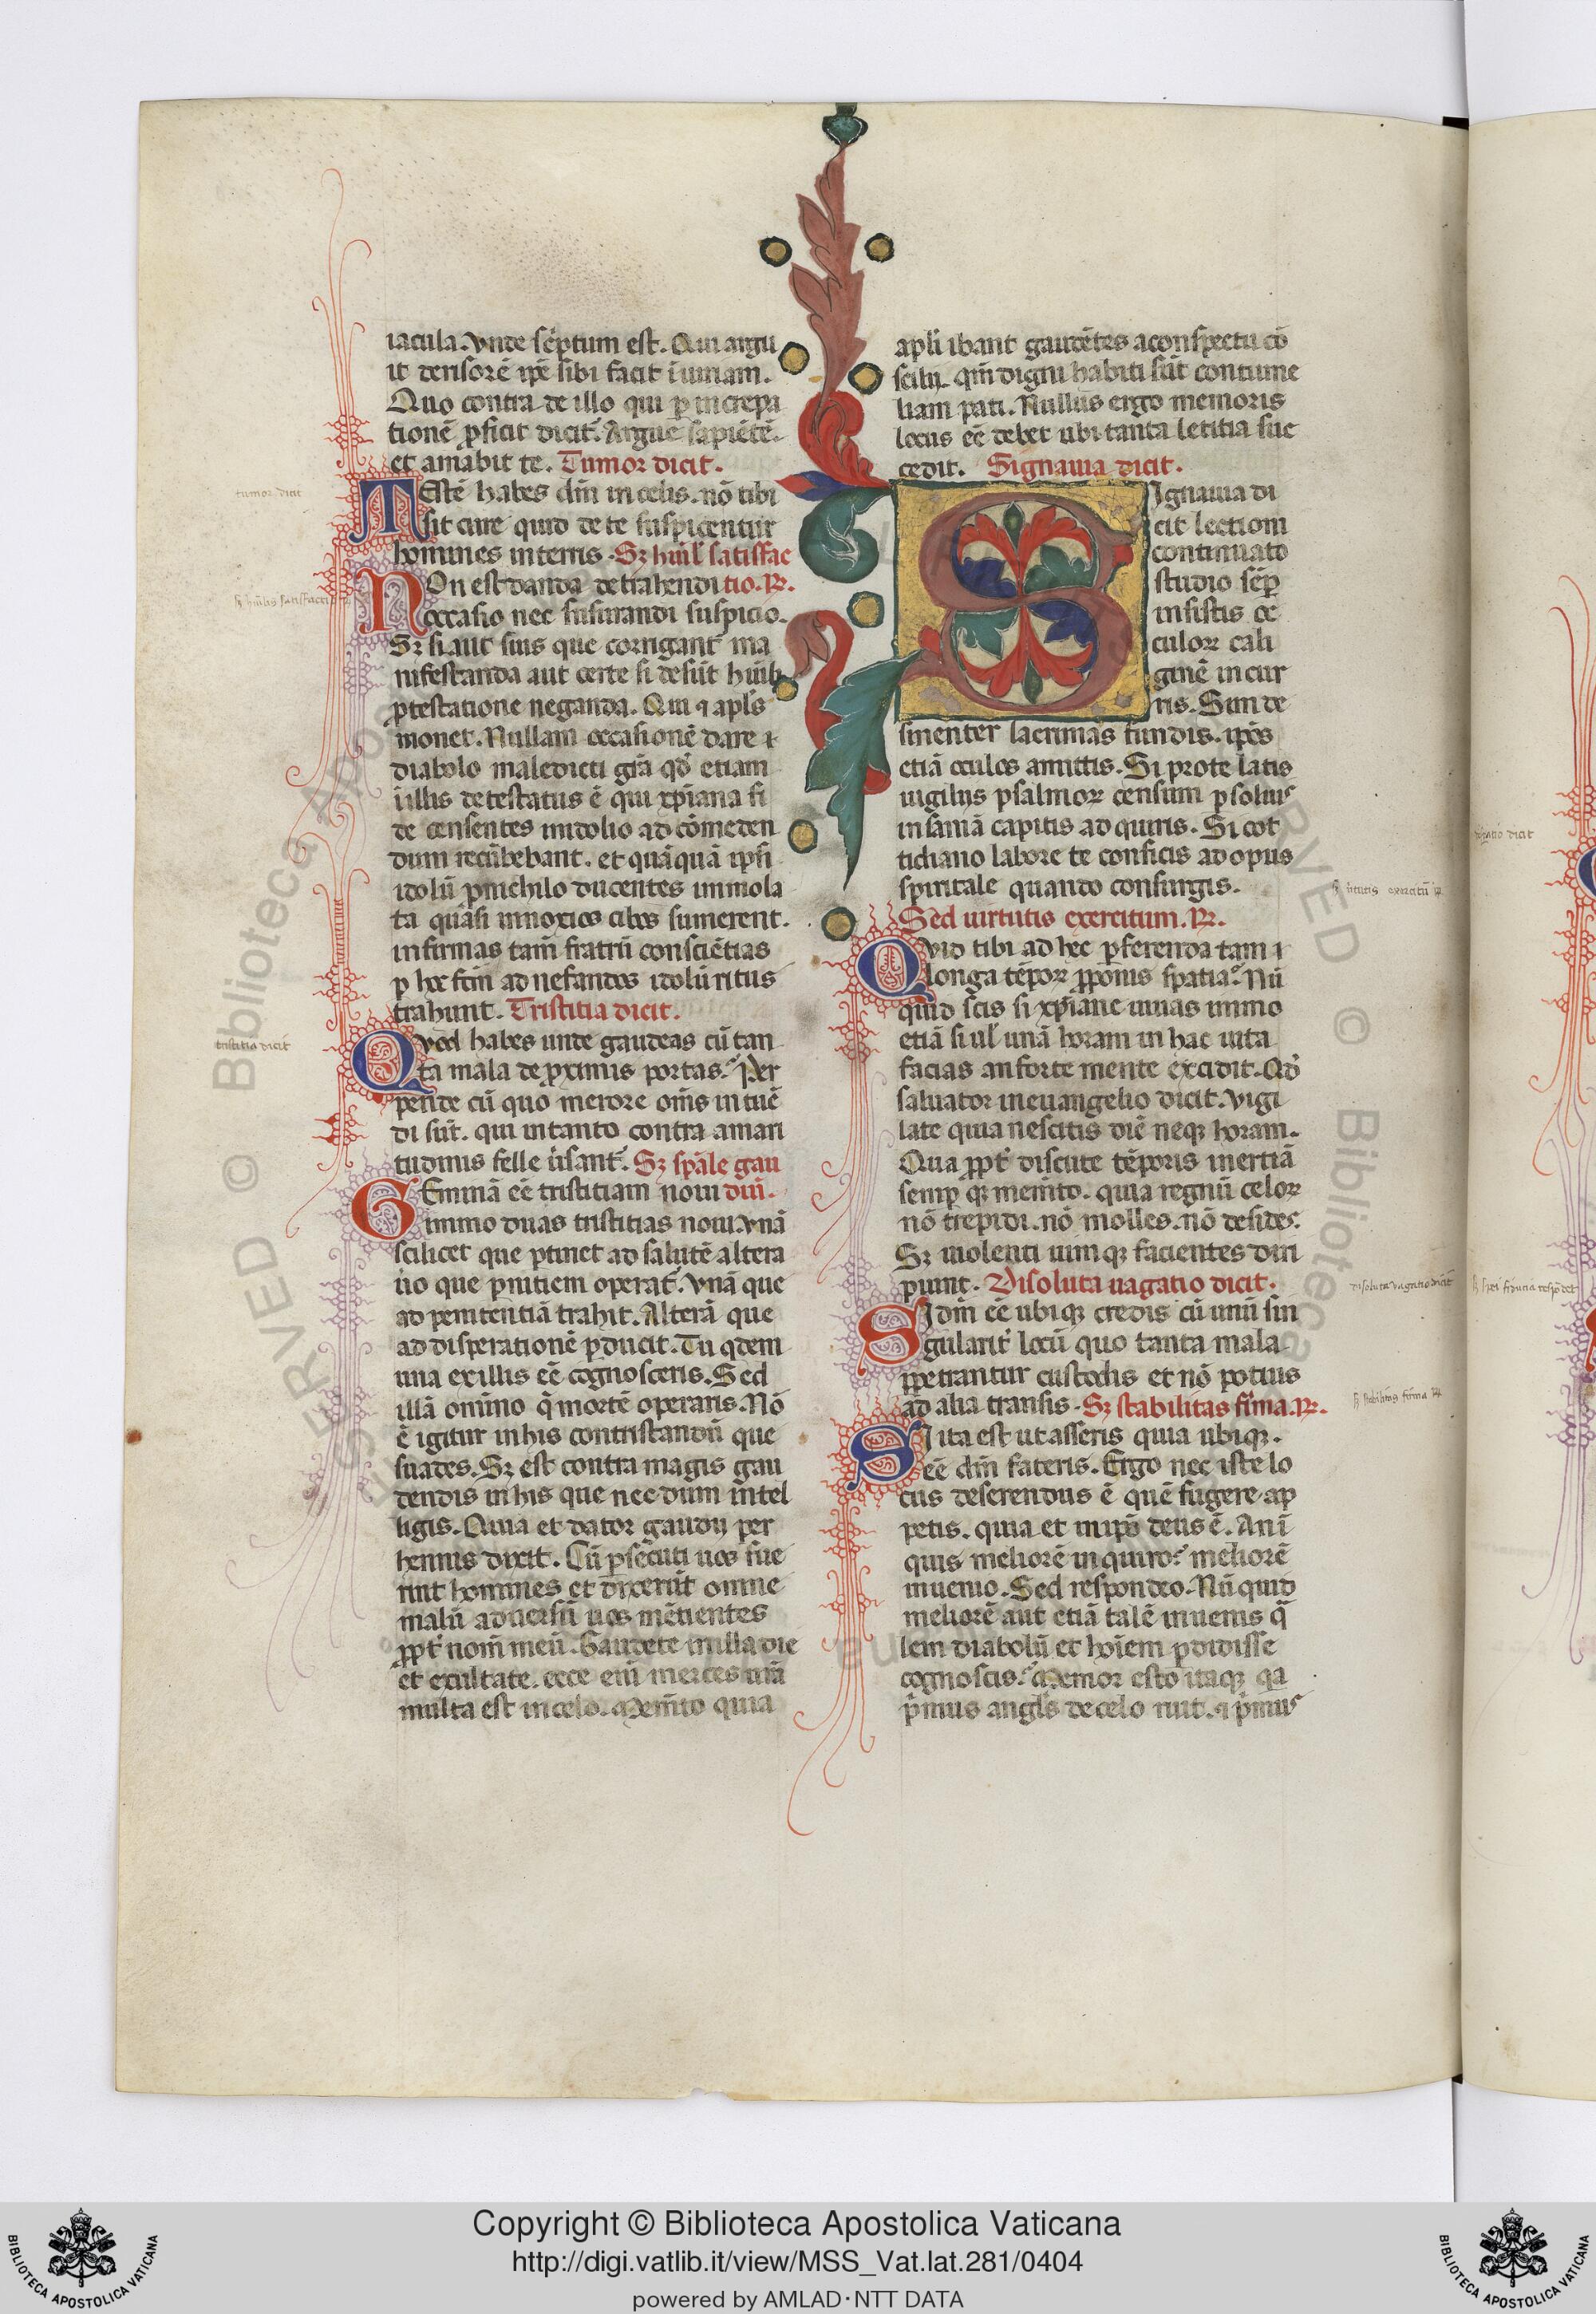 iacula. Vnde sc̄ptum est. Qui argu
it derisorē ip̄e sibi facit iniuriam.
Quo contra de illo qui ꝑ increpa
tionē ꝓficit dicit. Argue sapiētē.
et amabit te. Tumor dicit.
TEstē habes dn̄m in celis. nō tibi
sit cure quid de te suspicentur
homines in terris. Sꝫ hūil' satisfac
NOn est danda detrahendi tio. ꝶ.
occasio nec susurrandi suspicio.
Sꝫ si aut suis que corrigant ma
nifestanda aut certe si desūt hūili
ꝓtestatione neganda. Qui ⁊ apl's
monet. Nullam occasionē dare
diabolo maledicti grā qd̓ etiam
illis detestatus ē qui xp̄iana fi
de censentes in idolio ad cōmeden
dum recūbebant. et quāquā ip̄si
idolū ꝓ nichilo ducentes immola
ta quasi innoxios cibos sumerent.
infirmas tam̄ fratrū consciētias
ꝑ hoc fc̄m ad nefandos idolū ritus
trahunt. Tristitia dicit.
QVod habes unde gaudeas cū tan
ta mala de ꝓximis portas. Per
pende cū quo merore om̄s intuē
di sūt. qui in tanto contra amari
tudinis felle ūsant̄. Sꝫ spāle gau
GEminā eē tristitiam noui diū.
immo duas tristitias noui. Vnā
scilicet que ꝑtinet ad salutē altera
ūo que ꝑnitiem operat̄. Vnā que
ad penitentiā trahit. Alterā que
ad disperationē ꝑducit. Tu qdem
una ex illis eē cognosceris. Sed
illā omīno q̄ mortē operaris. Nō
ē igitur in his contristandū que
suades. Sꝫ est contra magis gau
dendis in his que nec dum intel
ligis. Quia et dator gaudij per
hennis dixit. Cū ꝑsecuti uos fue
rint homines et dixerūt omne
malū aduersū uos mētientes
ꝓpt̄ nom̄ meū. Gaudete in illa die
et exultate. ecce em̄ merces ur̄a
multa est in celo. Mem̄to quia
apl̄i ibant gaudētes a conspectu cō
scilij. qm̄ digni habiti sūt contume
liam pati. Nullus ergo memoris
locus eē debet ubi tanta letitia suc
cedit. Signauia dicit.
SIgnauia di
cit lectioni
continuato
studio sēꝑ
insistis oc
culoꝝ cali
ginē incur
ris. Sin de
sinenter lacrimas fundis. ip̄os
etiā oculos amittis. Si protelatis
uigilijs psalmoꝝ censum ꝑsoluis
insaniā capitis adquiris. Si cot
tidiano labore te conficis ad opus
spiritale quando consurgis.
Sed uirtutis exercitum. ꝶ.
QVid tibi ad hec ꝑferenda tam
longa tēpoꝝ ꝓponis spatia. Nū
quid scis si xp̄iane uiuas immo
etiā si ul' unā horam in hac uita
facias an forte mente excidit. Qd̓
saluator in euangelio dicit. Vigi
late quia nescitis diē neqꝫ horam.
Qua ꝓpt̄ discute tēporis inertiā
semꝑqꝫ mem̄to. quia regnū celoꝝ
nō trepidi. nō molles. nō desides.
Sꝫ uiolenti uimqꝫ facientes diri
piunt. Disoluta uagatio dicit.
SI dm̄ eē ubiqꝫ credis cū unū sin
gularit̄ locū quo tanta mala
ꝑpetrantur custodis et nō potius
ad alia transis. Sꝫ stabilitas firma. ꝶ.
SI ita est ut asseris quia ubiqꝫ.
eē dn̄m fateris. Ergo nec iste lo
cus deserendus ē quē fugere ap
petis. quia et in ip̄o deus ē. An ī
quis meliorē inquiro. meliorē
inuenio. Sed respondeo. Nū quid
meliorē aut etiā talē inuenis q̄
lem diabolū et hoīem ꝑdidisse
cognoscis. Memor esto itaqꝫ qa
p̄mus angl's de celo ruit. ⁊ p̄mus
tumor dicit
tristitia dicit
disoluta vagatio dicit
ꝶ stabilitas firma ꝶ
© Biblioteca Apostolica Vaticana
Copyright © Biblioteca Apostolica Vaticana
http://digi.vatlib.it/view/MSS_Vat.lat.281/0404
powered by AMLAD·NTT DATA
BIBLIOTECA APOSTOLICA VATICANA
BIBLIOTECA APOSTOLICA VATICANA